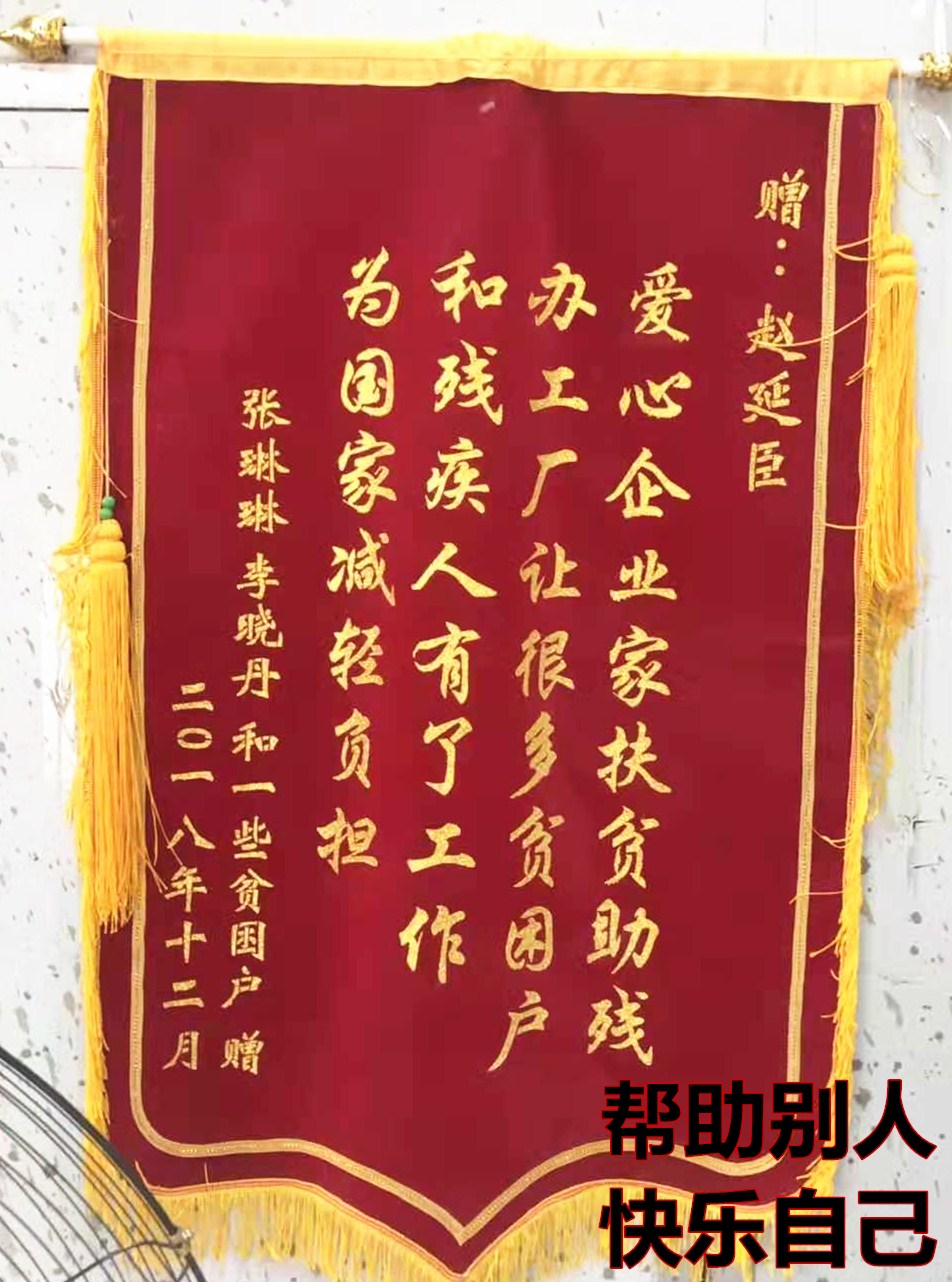 赠：赵延臣
爱心企业家扶贫助残
办工厂让很多贫困户
和残疾人有了工作
为国家减轻负担
张琳琳 李晓丹 和一些贫困户 赠
二〇一八年十二月
帮助别人
快乐自己